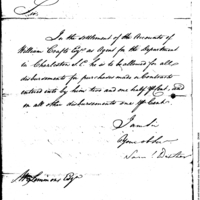 Sir,
In the settlement of the Accounts of
William Crafts Esqr as Agent for the Department
in Charleston S.C. he is to be allowed for all
disbursements for purchases made & Contracts
entered into by him two and one half pr Ct. and
on all other disbursements one pr Cent.
I am Sir
Esqr